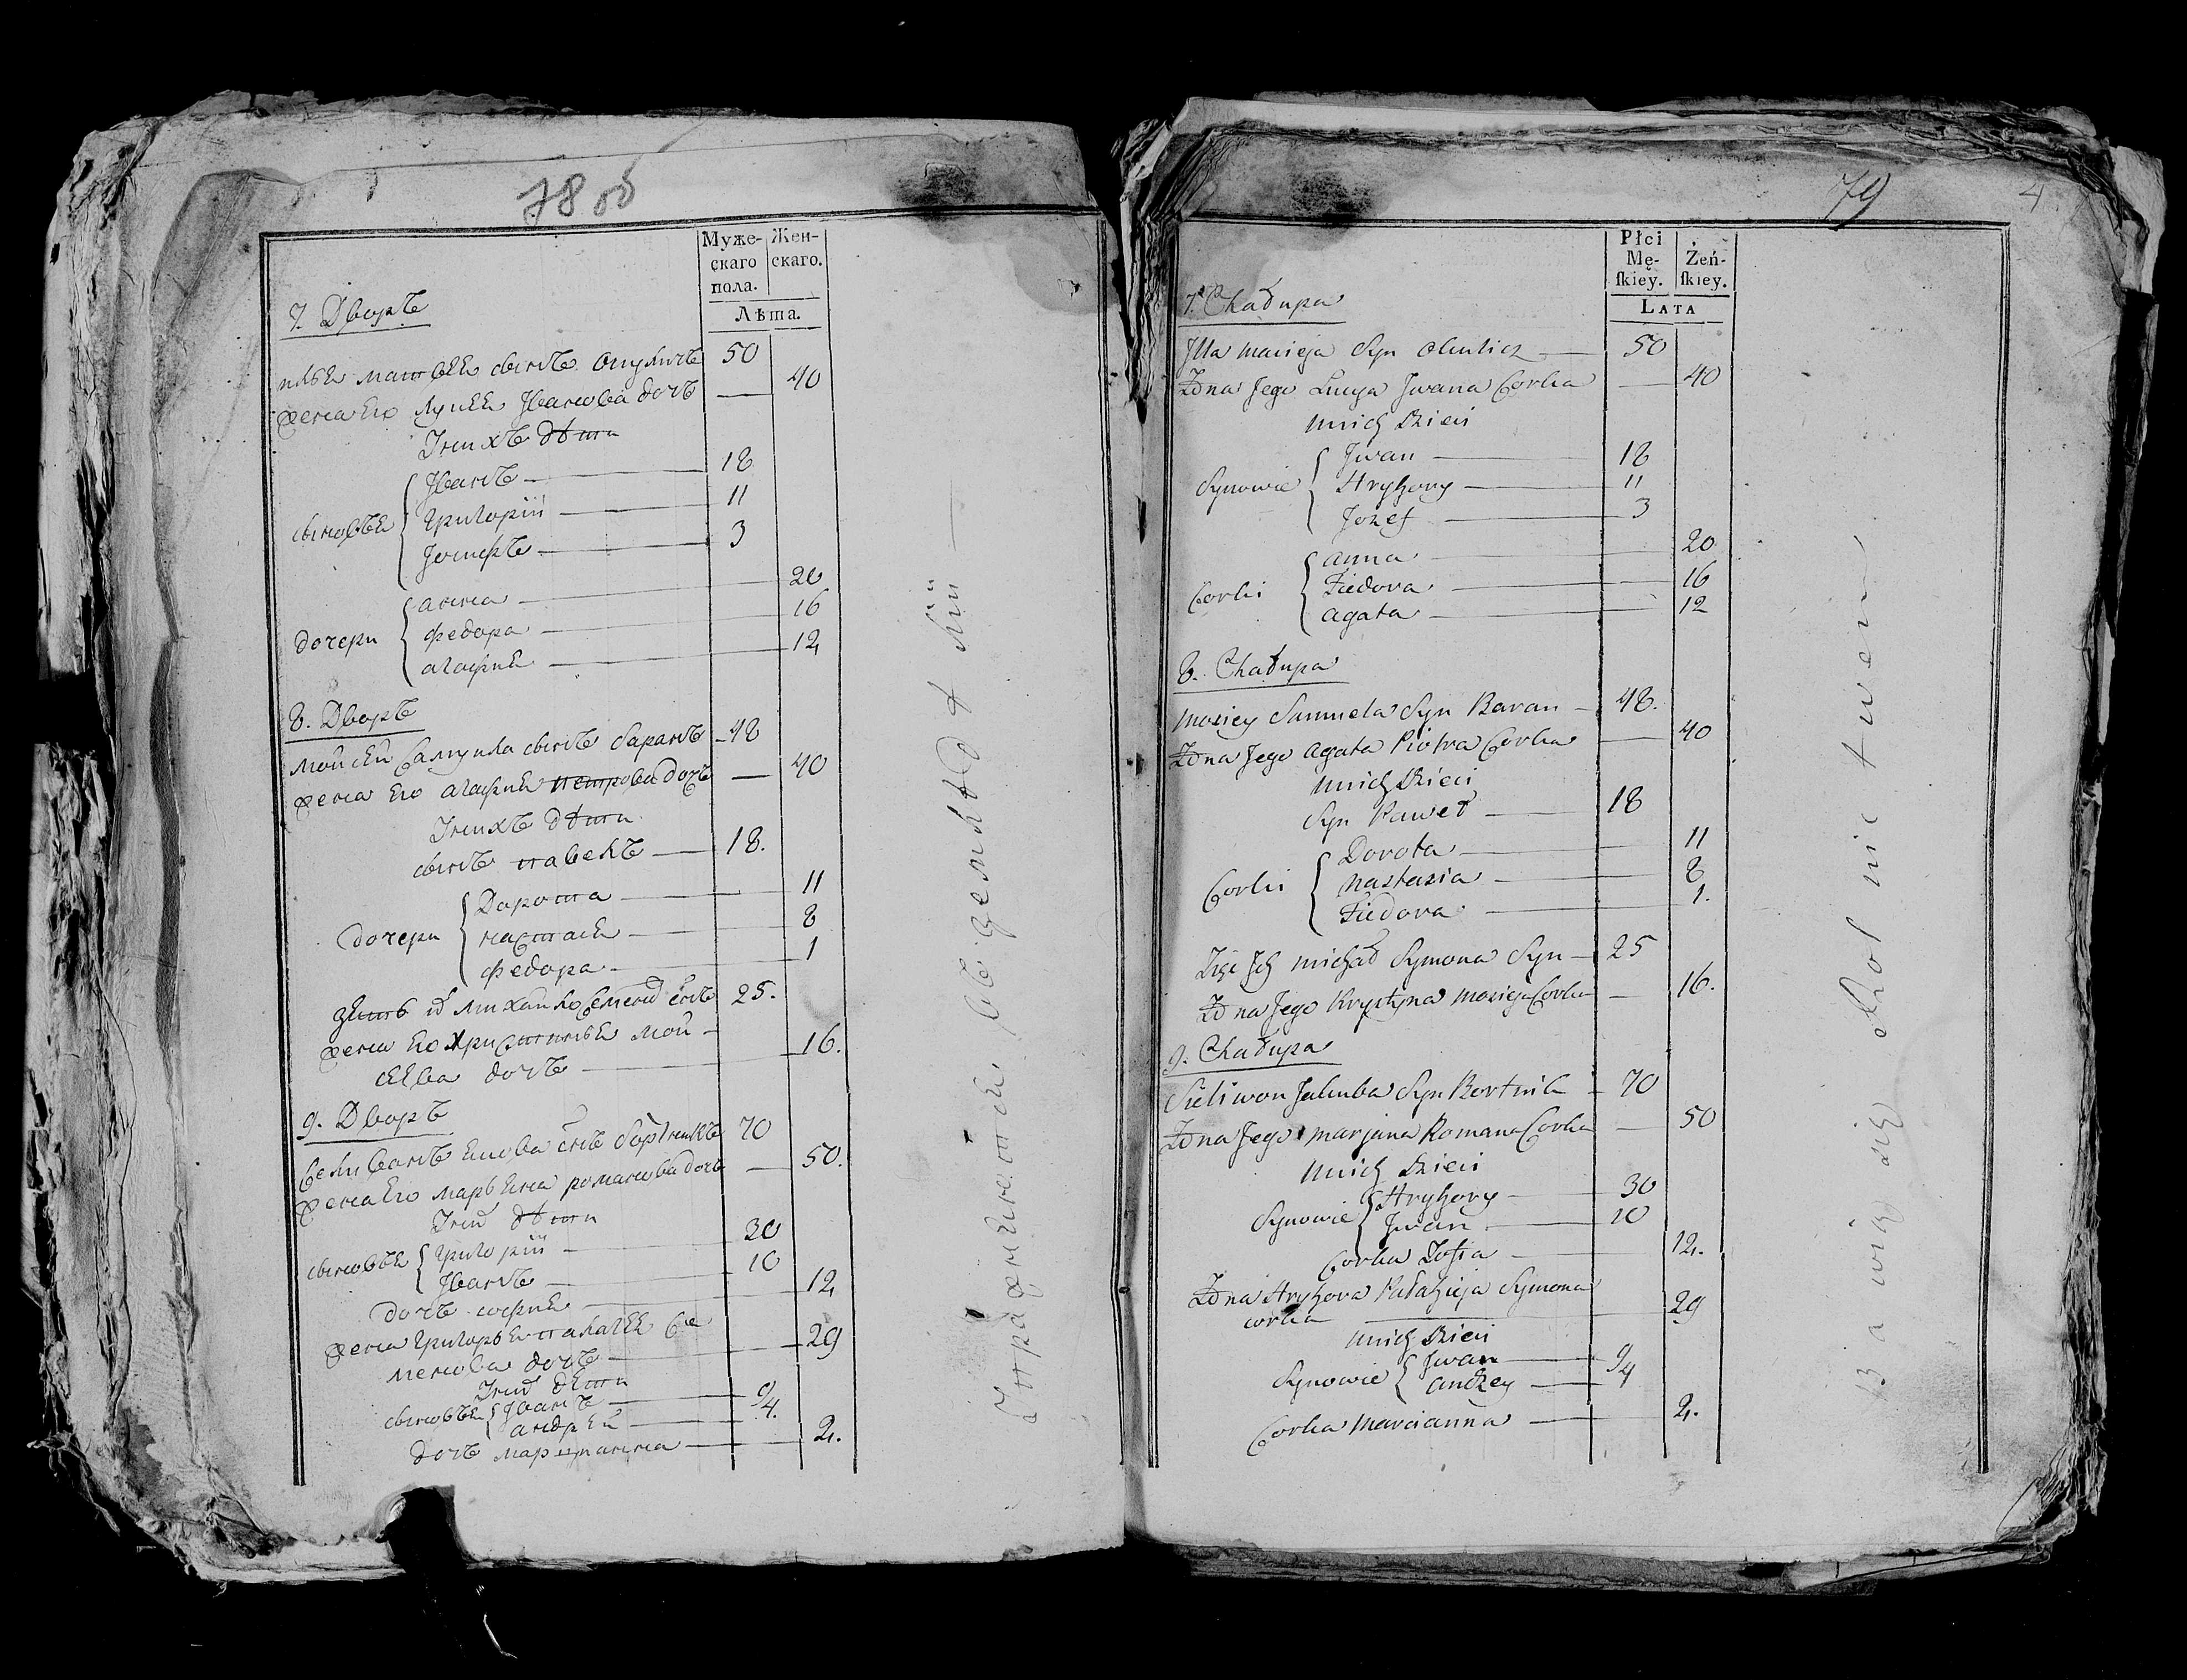 78 об
Муже-
скаго
пола.
Жен-
скаго.
Лѣта.
7. Дворъ
илья матвея сынъ 50
жена его луцея Iванова дочь — 40
Iнихъ дѣти
сыновья
Iванъ — 18
григорiй — 11
Iосифъ — 3
дочери
анна — 20
федора — 16
агафия — 12
8. Дворъ
мойсей Самуила сынъ баранъ — 48
жена его агафия петрова дочь — 40
Iнихъ дѣти
сынъ павелъ — 18.
дочери
Дарота — 11
настася — 8
федора — 1
зять их михайло Семена снъ 25.
жена его христинья мой-
сеева дочь — 16.
9. Дворъ
Селиванъ якова снъ бортникъ 70
жена его марьяна романова дочь — 50.
Iних дѣти
сыновья
григорiй — 30
Iванъ — 10
дочь софия — 12
жена григорья палагея Се
менова дочь — 29
Iних дѣти
сыновья
Iванъ — 9
андрей — 4.
дочь марцианна — 2.
79
4
Płci
Mę-
skiey.
Żeń-
skiey.
LATA
7. Chałupa
Jlla Macieja Syn — 50
Żona Jego Lucya Jwana Corka — 40
unich Dzieci
Synowie
Jwan — 18
Hryhory — 11
Jozef — 3
Corki
anna — 20
Fiedora — 16
agata — 12
8. Chałupa
Mosiey Samuela Syn Baran — 48.
Żona Jego agata Piotra Corka — 40
unich Dzieci
Syn Paweł — 18
Corki
Dorota — 11
nastazia — 8
Fiedora — 1.
Zięć Jch michał Symona Syn — 25
Żona Jego Krystyna Mosieja Corka — 16.
9. Chałupa
Sieliwon Jakuba Syn Bortnik — 70
Żona Jego marjana Romana Corka — 50
unich Dzieci
Synowie
Hryhory — 30
Jwan — 10
Corka Zofia — 12.
Żona Hryhora Pałahieja Symona
corka — 29
unich Dzieci
Synowie
Jwan — 9
andrzey — 4
Corka marcianna — 2.